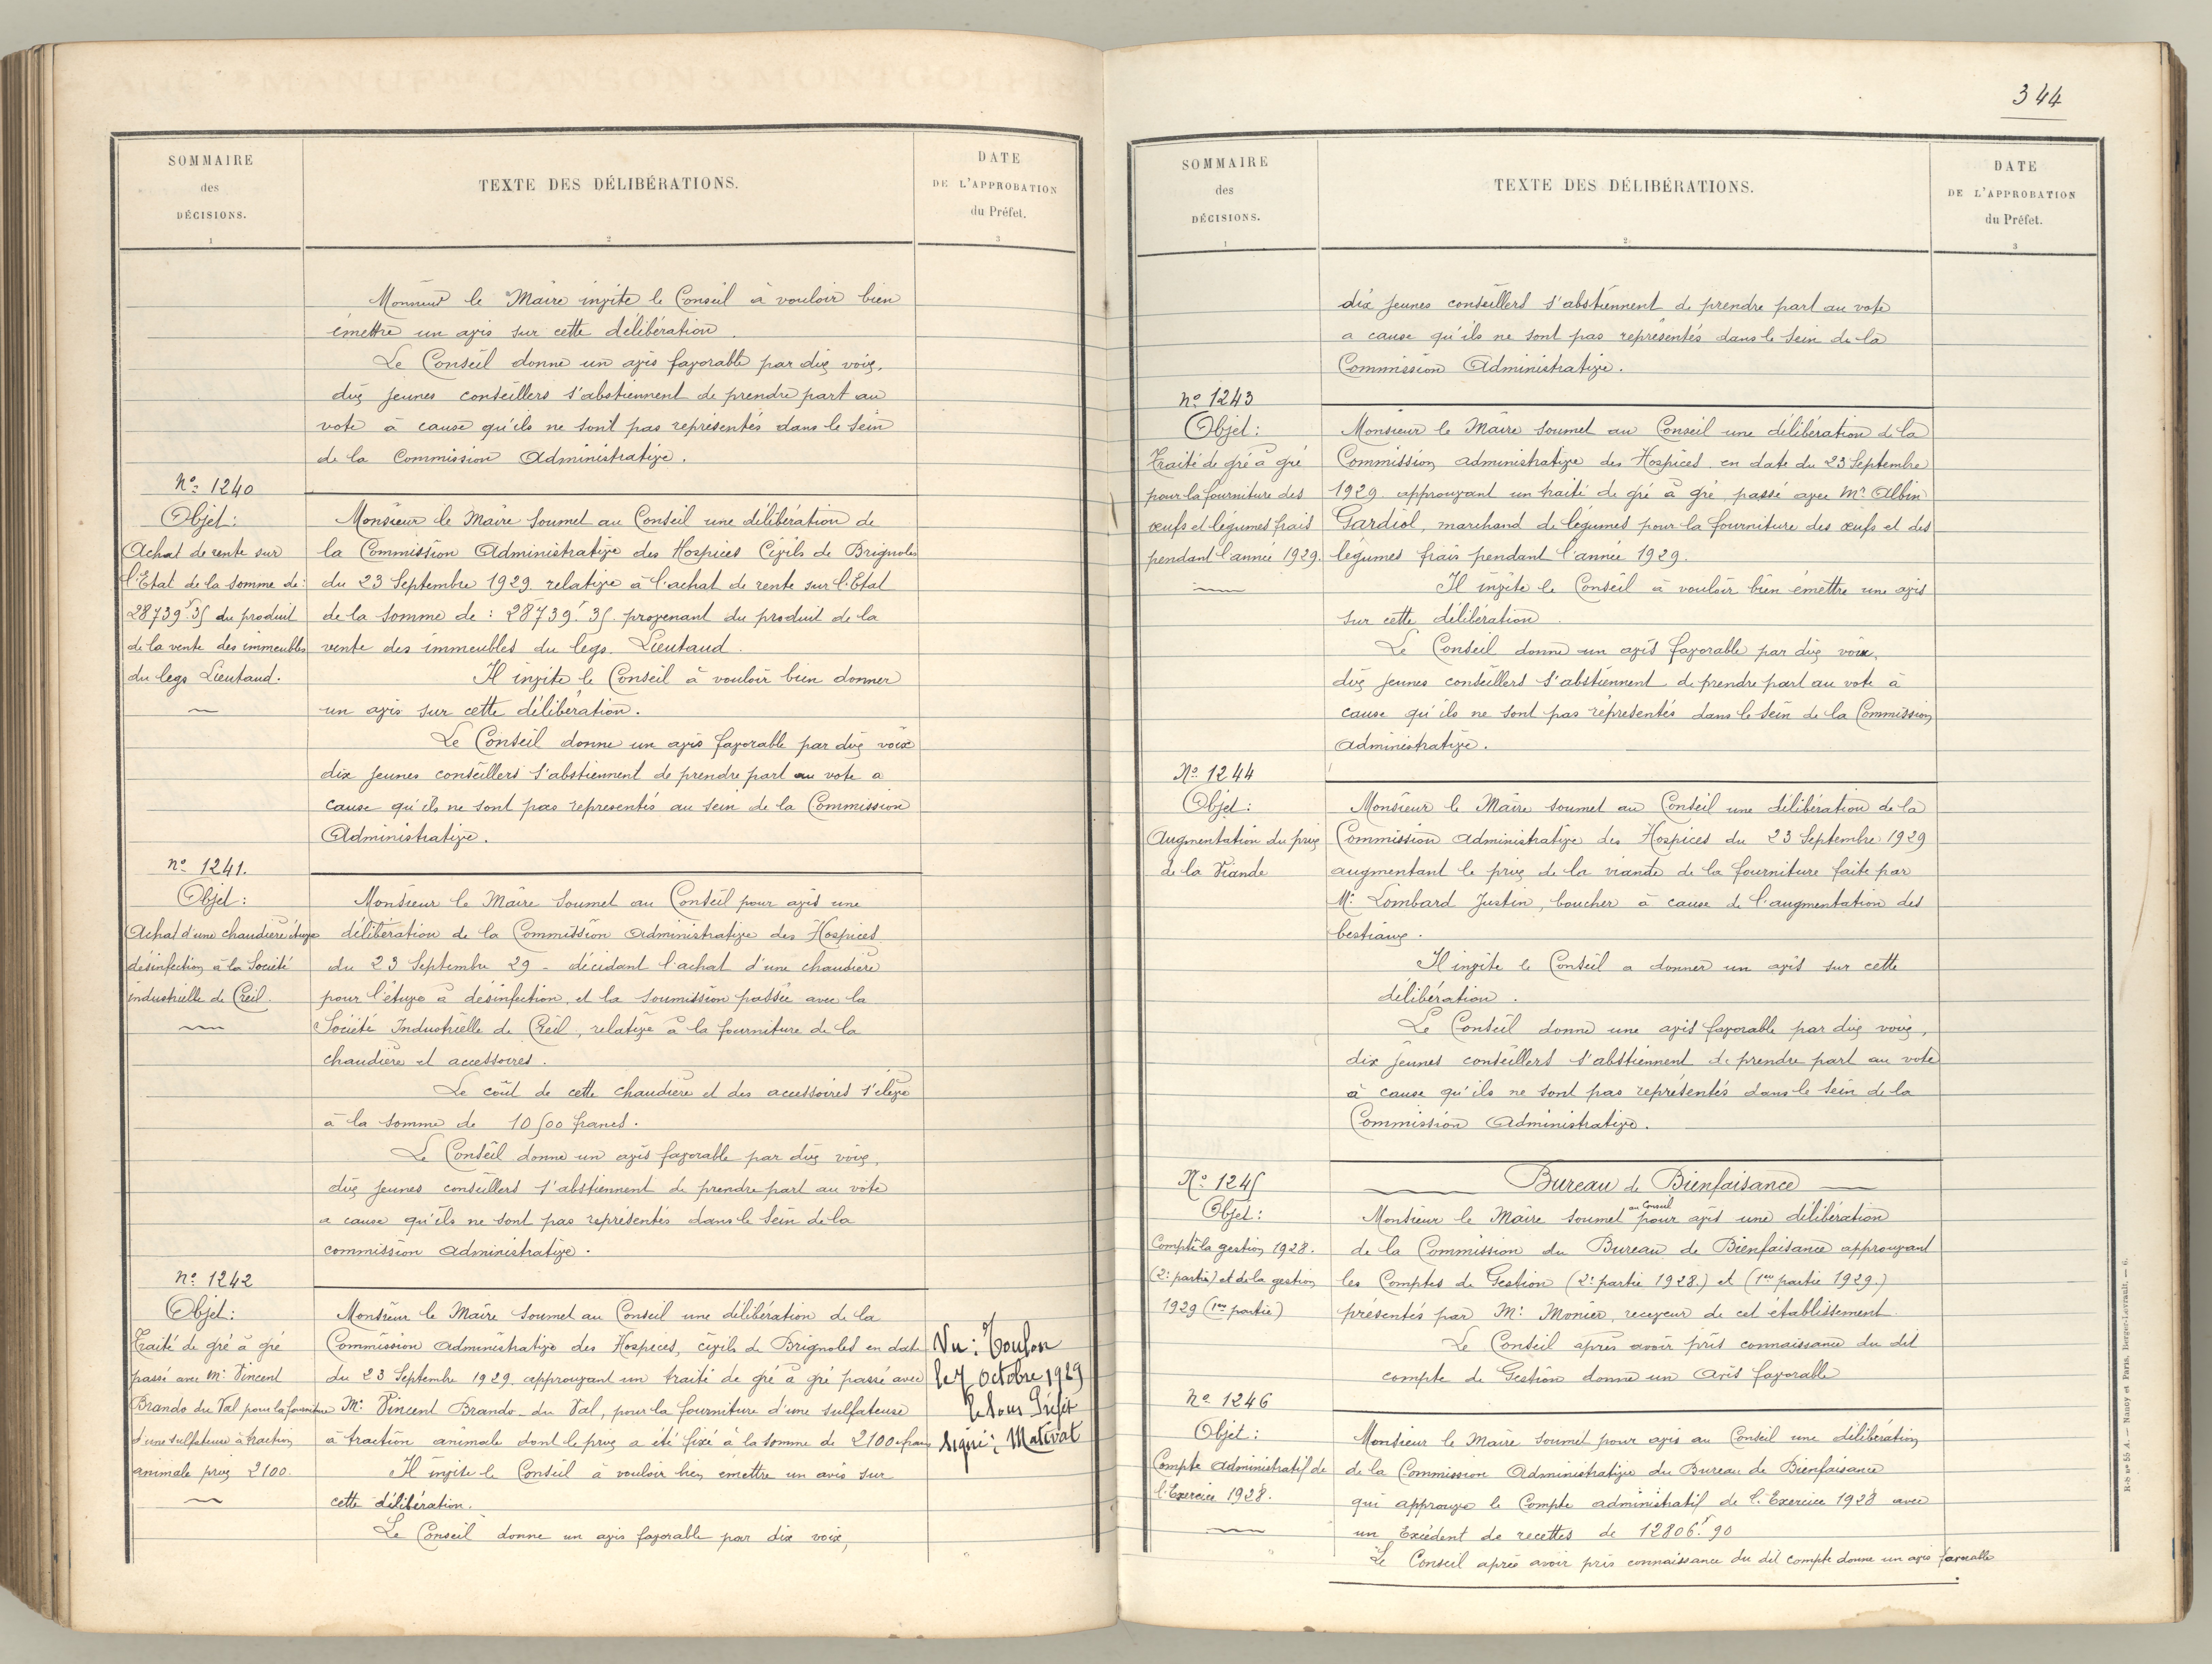 SOMMAIRE
des
DÉCISIONS.
1
TEXTE DES DÉLIBÉRATIONS.
2
DATE
DE L'APPROBATION
du Préfet.
3
Monsieur le Maire invite le Conseil à vouloir bien
émettre un avis sur cette délibération.
Le Conseil donne un avis favorable par dix voix,
dix jeunes conseillers s'abstiennent de prendre part au
vote à cause qu'ils ne sont pas représentés dans le sein
de la Commission Administrative.
No 1240
Objet:
Achat de rente sur
l'Etat de la somme de:
28739f.35 du produit
de la vente des immeubles
du legs Lieutaud.
Monsieur le Maire soumet au Conseil une délibération de
la Commission Administrative des Hospices Civils de Brignoles
du 23 Septembre 1929 relative à l'achat de rente sur l'Etat
de la somme de : 28739f.35. provenant du produit de la
vente des immeubles du legs. Lieutaud.
Il invite le Conseil à vouloir bien donner
un avis sur cette délibération.
Le Conseil donne un avis favorable par dix voix
dix jeunes conseillers s'abstiennent de prendre part au vote a
cause qu'ils ne sont pas représentés au sein de la Commission
Administrative.
no 1241.
Objet:
Achat d'une chaudière étuve
désinfection à la Société
industrielle de Creil.
Monsieur le Maire soumet au Conseil pour avis une
délibération de la Commission administrative des Hospices
du 23 Septembre 29 - décidant l'achat d'une chaudière
pour l'étuve à désinfection, et la soumission passée avec la
Société Industrielle de Creil, relative à la fourniture de la
chaudière et accessoires.
Le coût de cette chaudière et des accessoires s'élève
à la somme de 10500 francs.
Le Conseil donne un avis favorable par dix voix,
dix jeunes conseillers s'abstiennent de prendre part au vote
a cause qu'ils ne sont pas représentés dans le sein de la
commission administrative.
no 1242
Objet:
Traité de gré à gré
passé avec Mr Vincent
Brando du Val pour la fourniture
d'une sulfateuse à traction
animale prix 2100.
Monsieur le Maire soumet au Conseil une délibération de la
Commission administrative des Hospices, civils de Brignoles en date
du 23 Septembre 1929 approuvant un traité de gré à gré passé avec
Mr Vincent Brando du Val, pour la fourniture d'une sulfateuse
à traction animale dont le prix a été fixé à la somme de 2100 francs
Il invite le Conseil à vouloir bien émettre un avis sur
cette délibération.
Le Conseil donne un avis favorable par dix voix,
Vu: Toulon
le 7 Octobre 1929
le Sous Préfet
Signé: Mativat
344
SOMMAIRE
des
DÉCISIONS.
1
TEXTE DES DÉLIBÉRATIONS.
2
DATE
DE L'APPROBATION
du Préfet.
3
dix jeunes conseillers s'abstiennent de prendre part au vote
a cause qu'ils ne sont pas représentés dans le sein de la
Commission Administrative.
no 1243
Objet:
Traité de gré à gré
pour la fourniture des
œufs et légumes frais
pendant l'année 1929.
Monsieur le Maire soumet au Conseil une délibération de la
Commission administrative des Hospices en date du 23 Septembre
1929 approuvant un traité de gré à gré passé avec Mr Albin
Gardiol, marchand de légumes pour la fourniture des œufs et des
légumes frais pendant l'année 1929.
Il invite le Conseil à vouloir bien émettre une avis
sur cette délibération.
Le Conseil donne un avis favorable par dix voix,
dix jeunes conseillers s'abstiennent de prendre part au vote à
cause qu'ils ne sont pas représentés dans le sein de la Commission
administrative.
No 1244
Objet:
Augmentation du prix
de la Viande
Monsieur le Maire soumet au Conseil une délibération de la
Commission administrative des Hospices du 23 Septembre 1929
augmentant le prix de la viande de la fourniture faite par
Mr Lombard Justin, boucher à cause de l'augmentation des
bestiaux.
Il invite le Conseil a donner un avis sur cette
délibération.
Le Conseil donne une avis favorable par dix voix,
dix jeunes conseillers s'abstiennent de prendre part au vote
à cause qu'ils ne sont pas représentés dans le sein de la
Commission Administrative.
No 1245
Objet:
Compte la gestion 1928.
(2e partie) et de la gestion
1929 (1re partie)
Bureau de Bienfaisance
au Conseil
Monsieur le Maire soumet pour avis une délibération
de la Commission du Bureau de Bienfaisance approuvant
les Comptes de Gestion (2e partie 1928.) et (1re partie 1929.)
présentés par Mr Monier, receveur de cet établissement.
Le Conseil après avoir pris connaissance du dit
compte de Gestion donne un avis favorable
no 1246
Objet:
Compte Administratif de
l'Exercice 1928.
Monsieur le Maire soumet pour avis au Conseil une délibération
de la Commission Administrative du Bureau de Bienfaisance
qui approuve le Compte administratif de l'Exercice 1928 avec
un Excédent de recettes de 12806f.90
Le Conseil après avoir pris connaissance du dit compte donne un avis favorable
R-b no 55 A. — Nancy et Paris, Berger-Levrault. — 6.